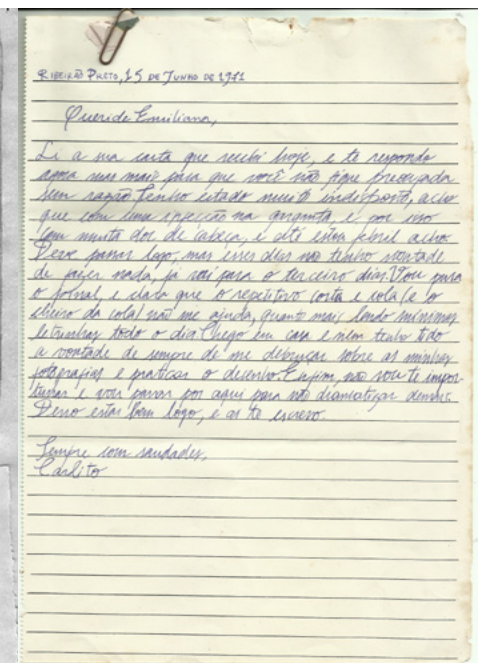 RIBEIRÃO PRETO, 15 DE JUNHO DE 1971
Querida Emiliana,
Li a sua carta que recebi hoje, e te respondo
agora mesmo para que você não fique preocupada
sem razão. Tenho estado muito indisposto, acho
que com uma infecção na garganta, e por isso
com muita dor de cabeça, e até estou febril acho.
Deve passar logo, mas esses dias não tenho vontade
de fazer nada, já vai para o terceiro dias. Vou para
o jornal, e claro que o repetitivo corta e cola (e o
cheiro da cola) não me ajuda, quanto mais lendo mínimas
letrinhas todo o dia. Chego em casa e nem tenho tido
a vontade de sempre de me debruçar sobre as minhas
fotografias e praticar o desenho. Enfim, não vou te impor-
tunar e vou parar por aqui para não dramatizar demais.
Devo estar bem logo, e aí te escrevo.
Sempre com saudades,
Carlito